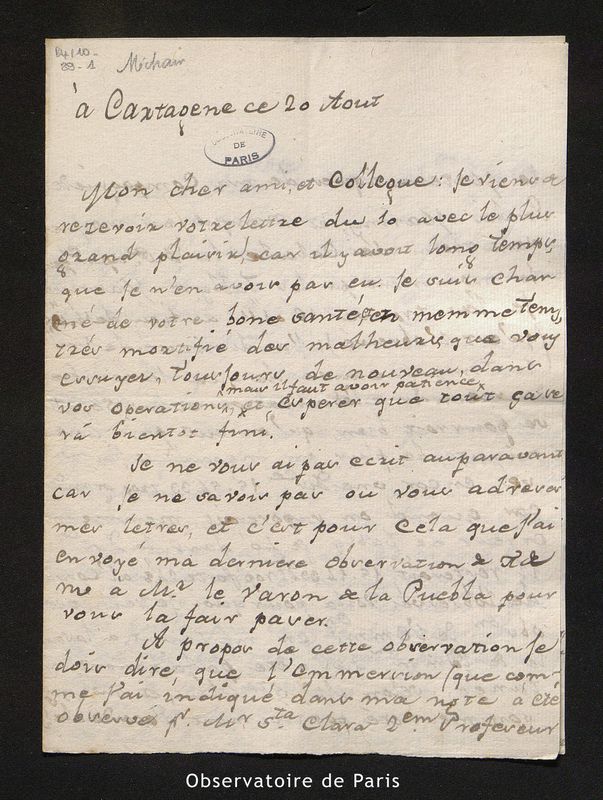 B4/10-
89-1 Méchain
à Cartagene ce 20 Aout
OBSERVATOIRE
DE
PARIS
Mon cher ami, et Collegue: Je viens de
rezevoir votre lettre du 10 avec le plus
grand plaisir, car il y avoit long temps
que Je n'en avois pas eu. Je suis char
mé de votre bone santé, et en memme temps
trés mortifié des malheurs que vous
essuyer, tousjours, de nouveau, dans
mais il faut avoir patience,
vos operations, et esperer que tout ça se
rá bientot fini.
Je ne vous ai pas ecrit auparavant
car Je ne savois pas ou vous adresser
mes letres, et c'est pour cela que J'ai
envoyé ma derniere observation de
me à Mr. le Varon de la Puebla pour
vous la fair paser.
A propos de cette observation Je
dois dire, que l'Emmersion (que com
me J'ai indiqué dans ma note à été
observé pr. Mr Sta. Clara 2em Profeseur
Observatoire de Paris